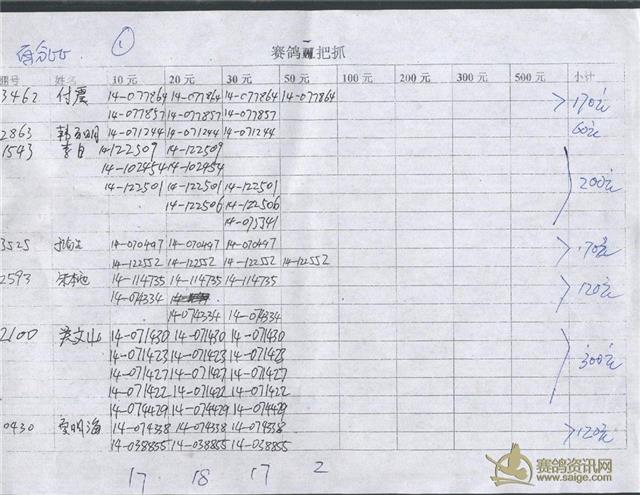 ①
赛鸽 把抓
棚号 姓名 10元 20元 30元 50元 100元 200元 300元 500元 小计
3462 付震 14-077864 14-077864 14-077864 14-077864
14-077857 14-077857 14-077857 170元
2863 韩 明 14-071244 14-071244 14-071244 60元
1543 李自 14-122509 14-122509
14-102454 14-102454
14-122501 14-122501 14-122501 200元
14-122506 14-122506
14-075341
3525 14-070497 14-070497 14-070497
14-122552 14-122552 14-122552 14-122552 170元
2593 宋本 14-114735 14-114735 14-114735
14-074334 120元
14-074334 14-074334
2100 文山 14-071430 14-071430 14-071430
14-071423 14-071423 14-071423
14-071427 14-071427 14-071427 300元
14-071422 14-071422 14-071422
14-074429 14-074429 14-074429
0430 明海 14-074338 14-074338 14-074338 120元
14-038855 14-038855 14-038855
17 18 17 2
赛鸽资讯网
www.saige.com